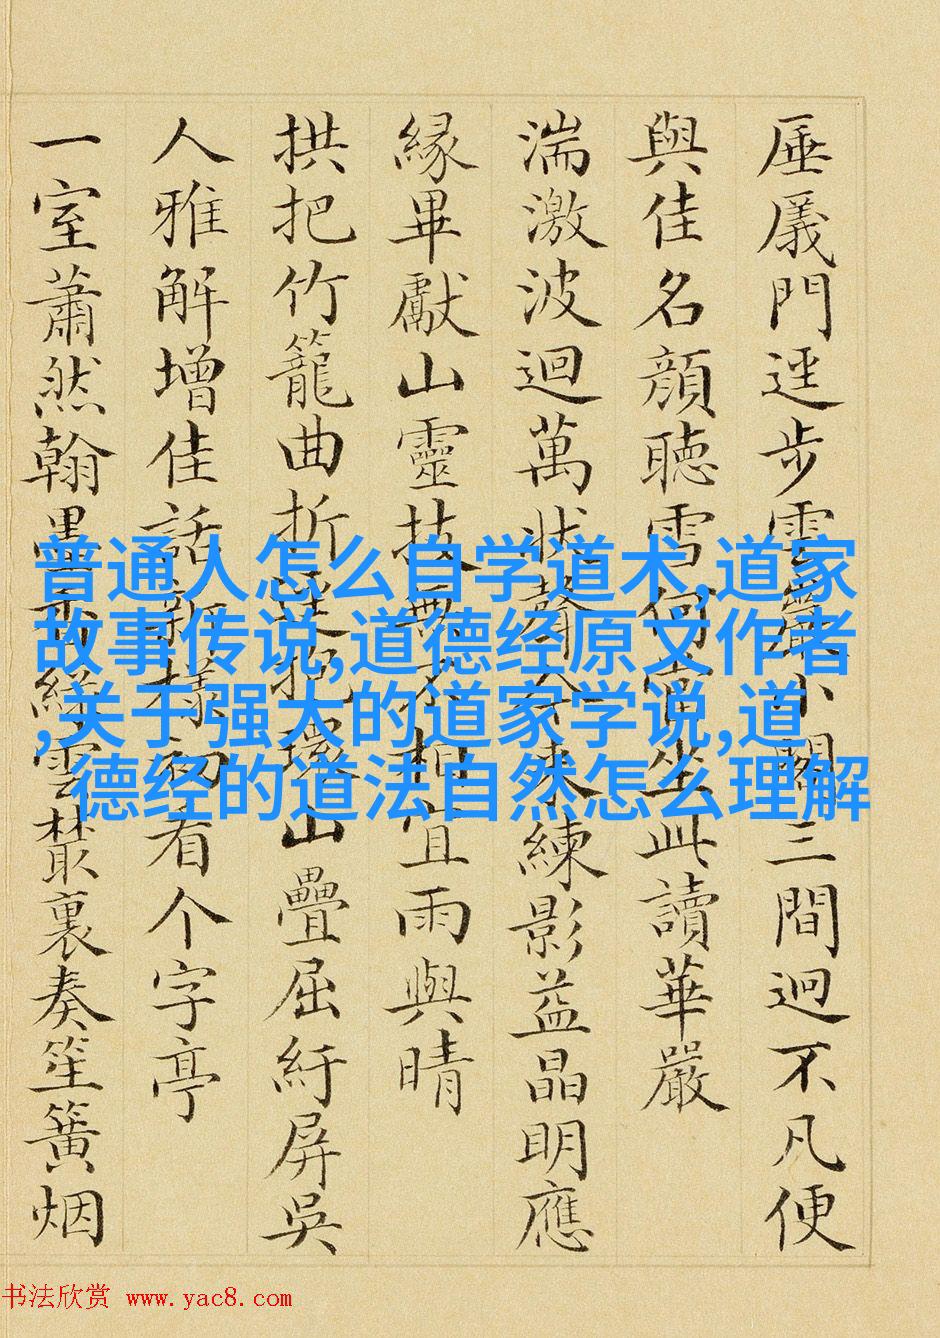 厜㕒門逕步雲小閣三間迥不凡便
與佳名顔聽雪何宜坐此讀華嚴
湍激波迴萬狀聲練影益晶明應
緣畢獻山靈技無不相宜雨與晴
拱把竹籠曲折山疊屈紆屏吳
人雅解增佳話新樣初有个字亭
一室蕭然翰墨雲叢裏奏笙簧烟
普通人怎么自学道术,道家
故事传说,道德经原文作者
,关于强大的道家学说,道
德经的道法自然怎么理解
书法欣赏 www.yac8.com